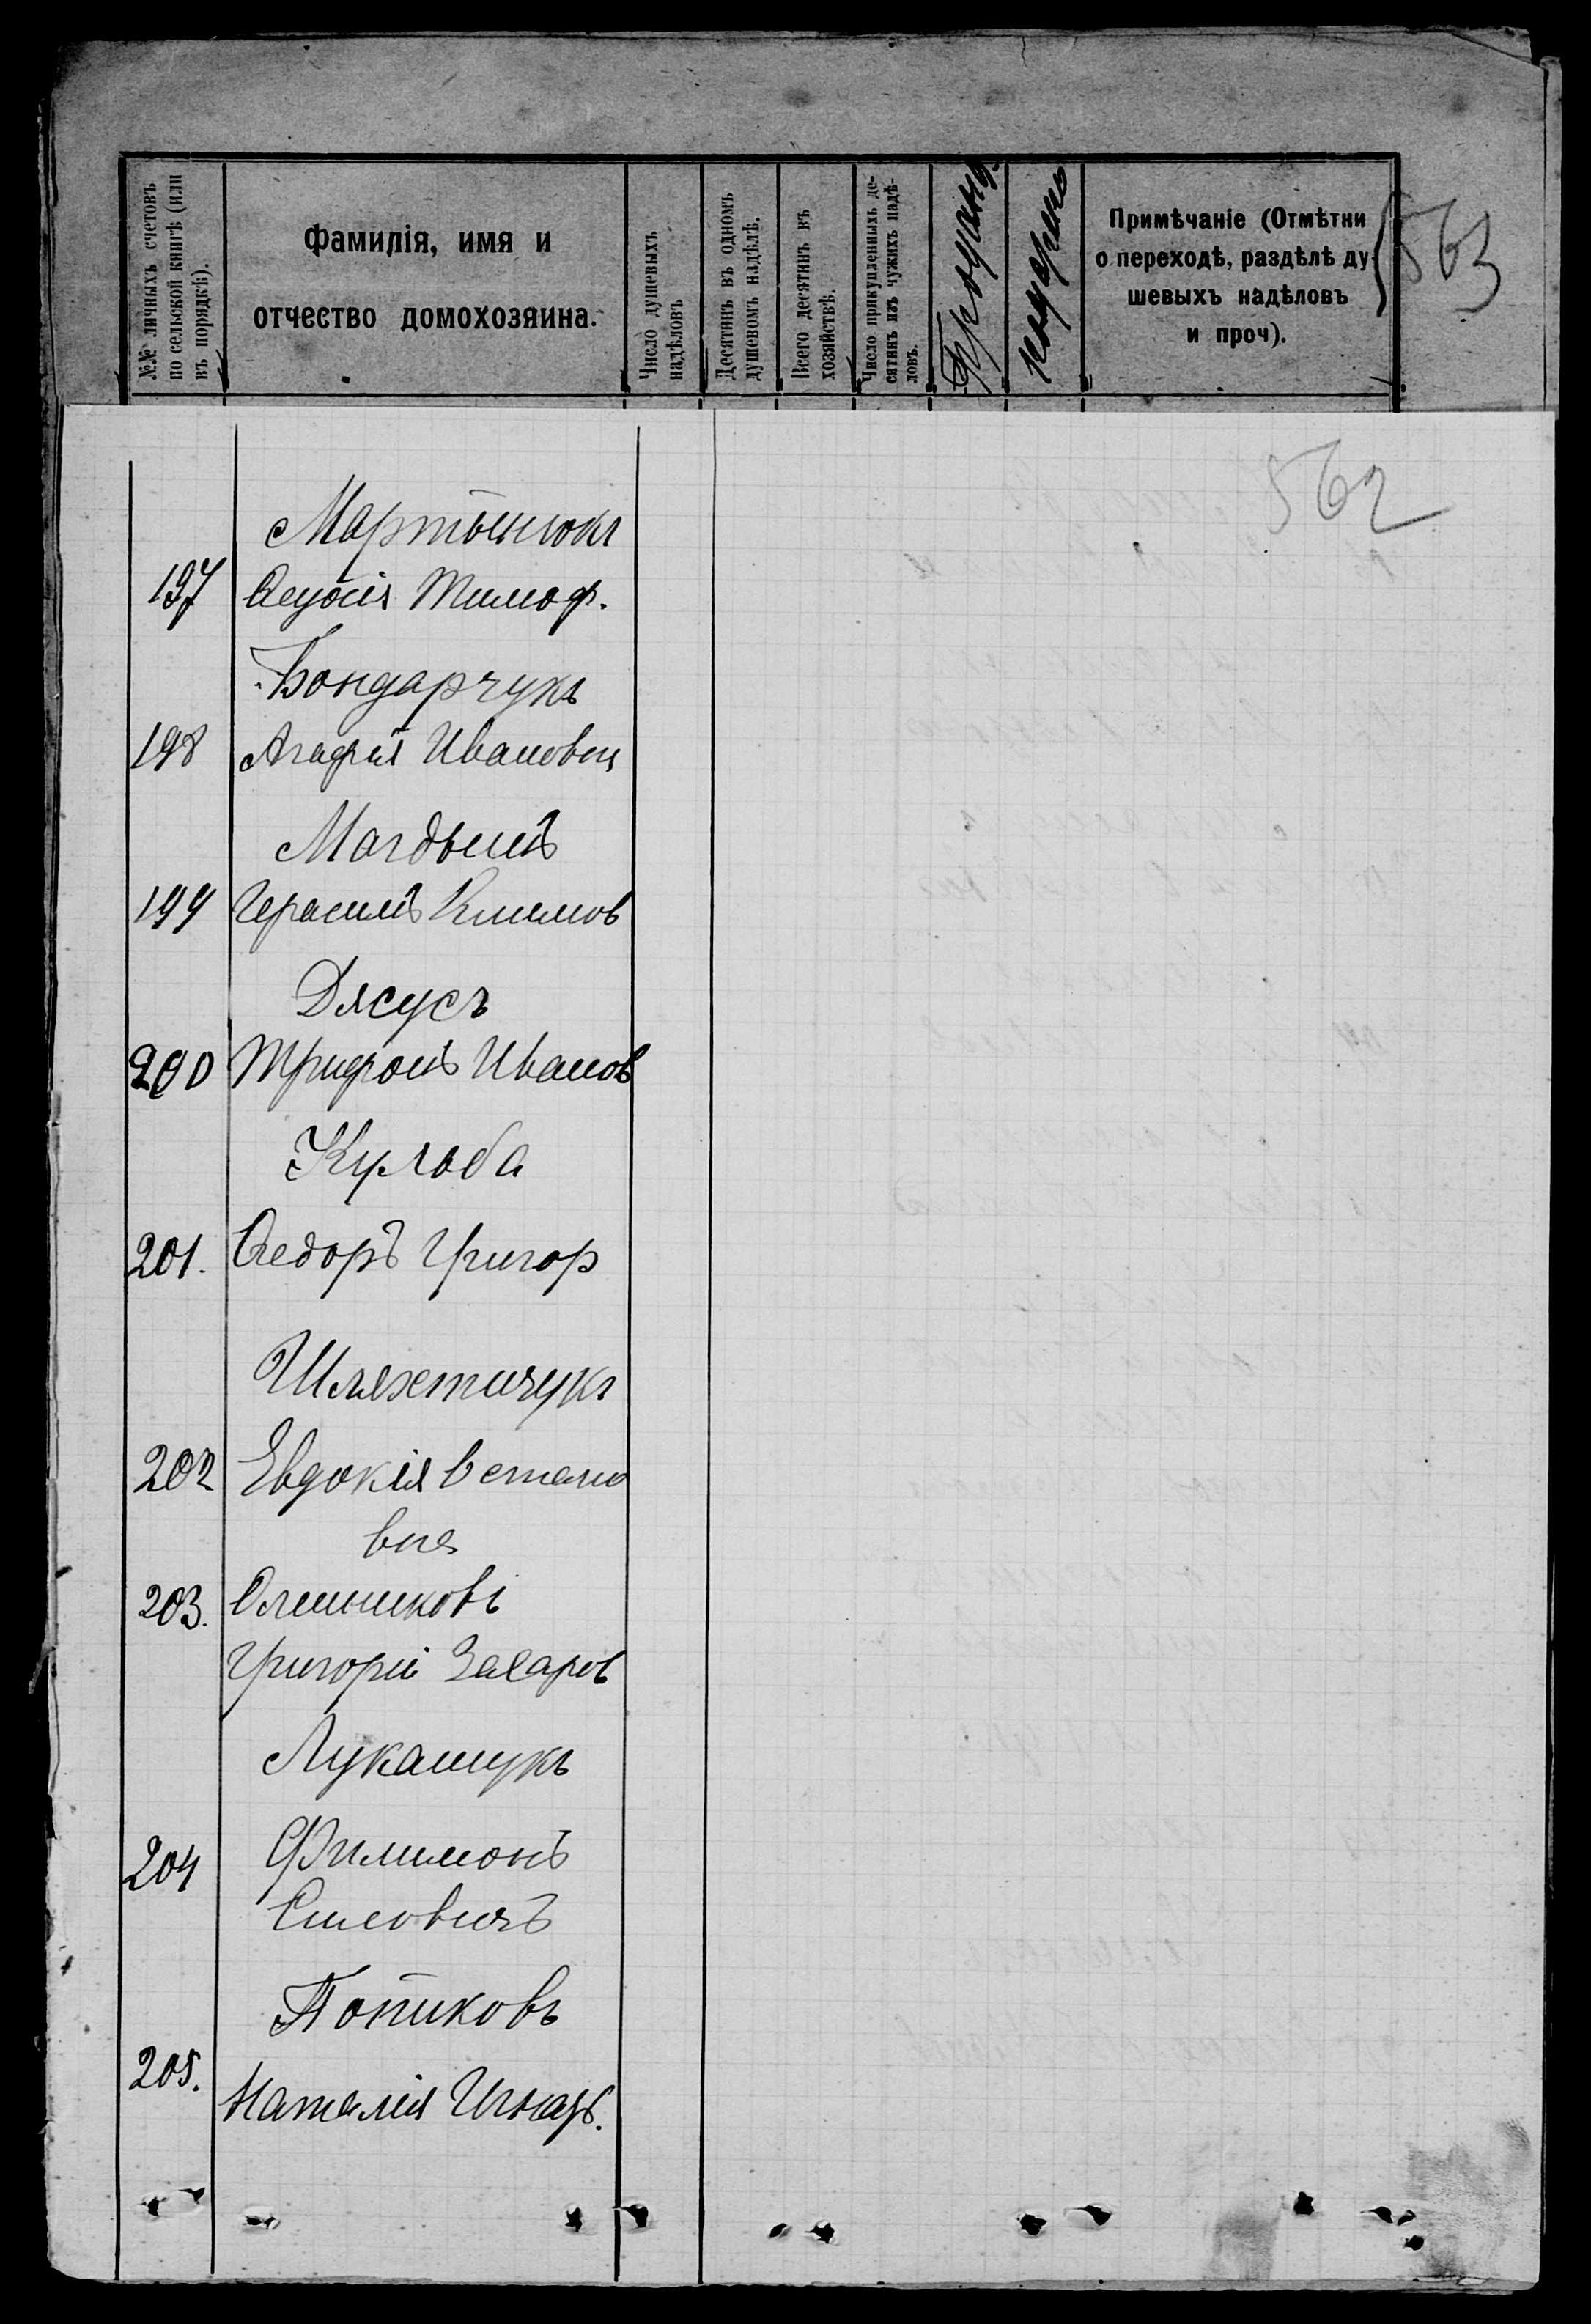 №№ личныхъ счетовъ
по сельской книгѣ (или
въ порядкѣ).
Фамилія, имя и
отчество домохозяина.
Число душевыхъ
надѣловъ
Десятинъ въ одномъ
душевомъ надѣлѣ.
Всего десятинъ въ
хозяйствѣ.
Число прикупленныхъ де-
сятинъ изъ чужихъ надѣ-
ловъ.
Примѣчаніе (Отмѣтки
о переходѣ, раздѣлѣ ду-
шевыхъ надѣловъ
и проч).
563
562
Мартынюкъ
197 Тимоф.
Бондарчукъ
198 Агафія Ивановн
Магдыч
199 Герасимъ Климов
Дясусъ
200 Трифонъ Иванов
Кульба
201. Ѳедоръ Григор
Шляхетчукъ
202 Евдокія Степано
вна
203. Олейниковъ
Григорій Захаров
Лукашукъ
204 Филимонъ
Поповиковъ
205. Наталія Игнат.